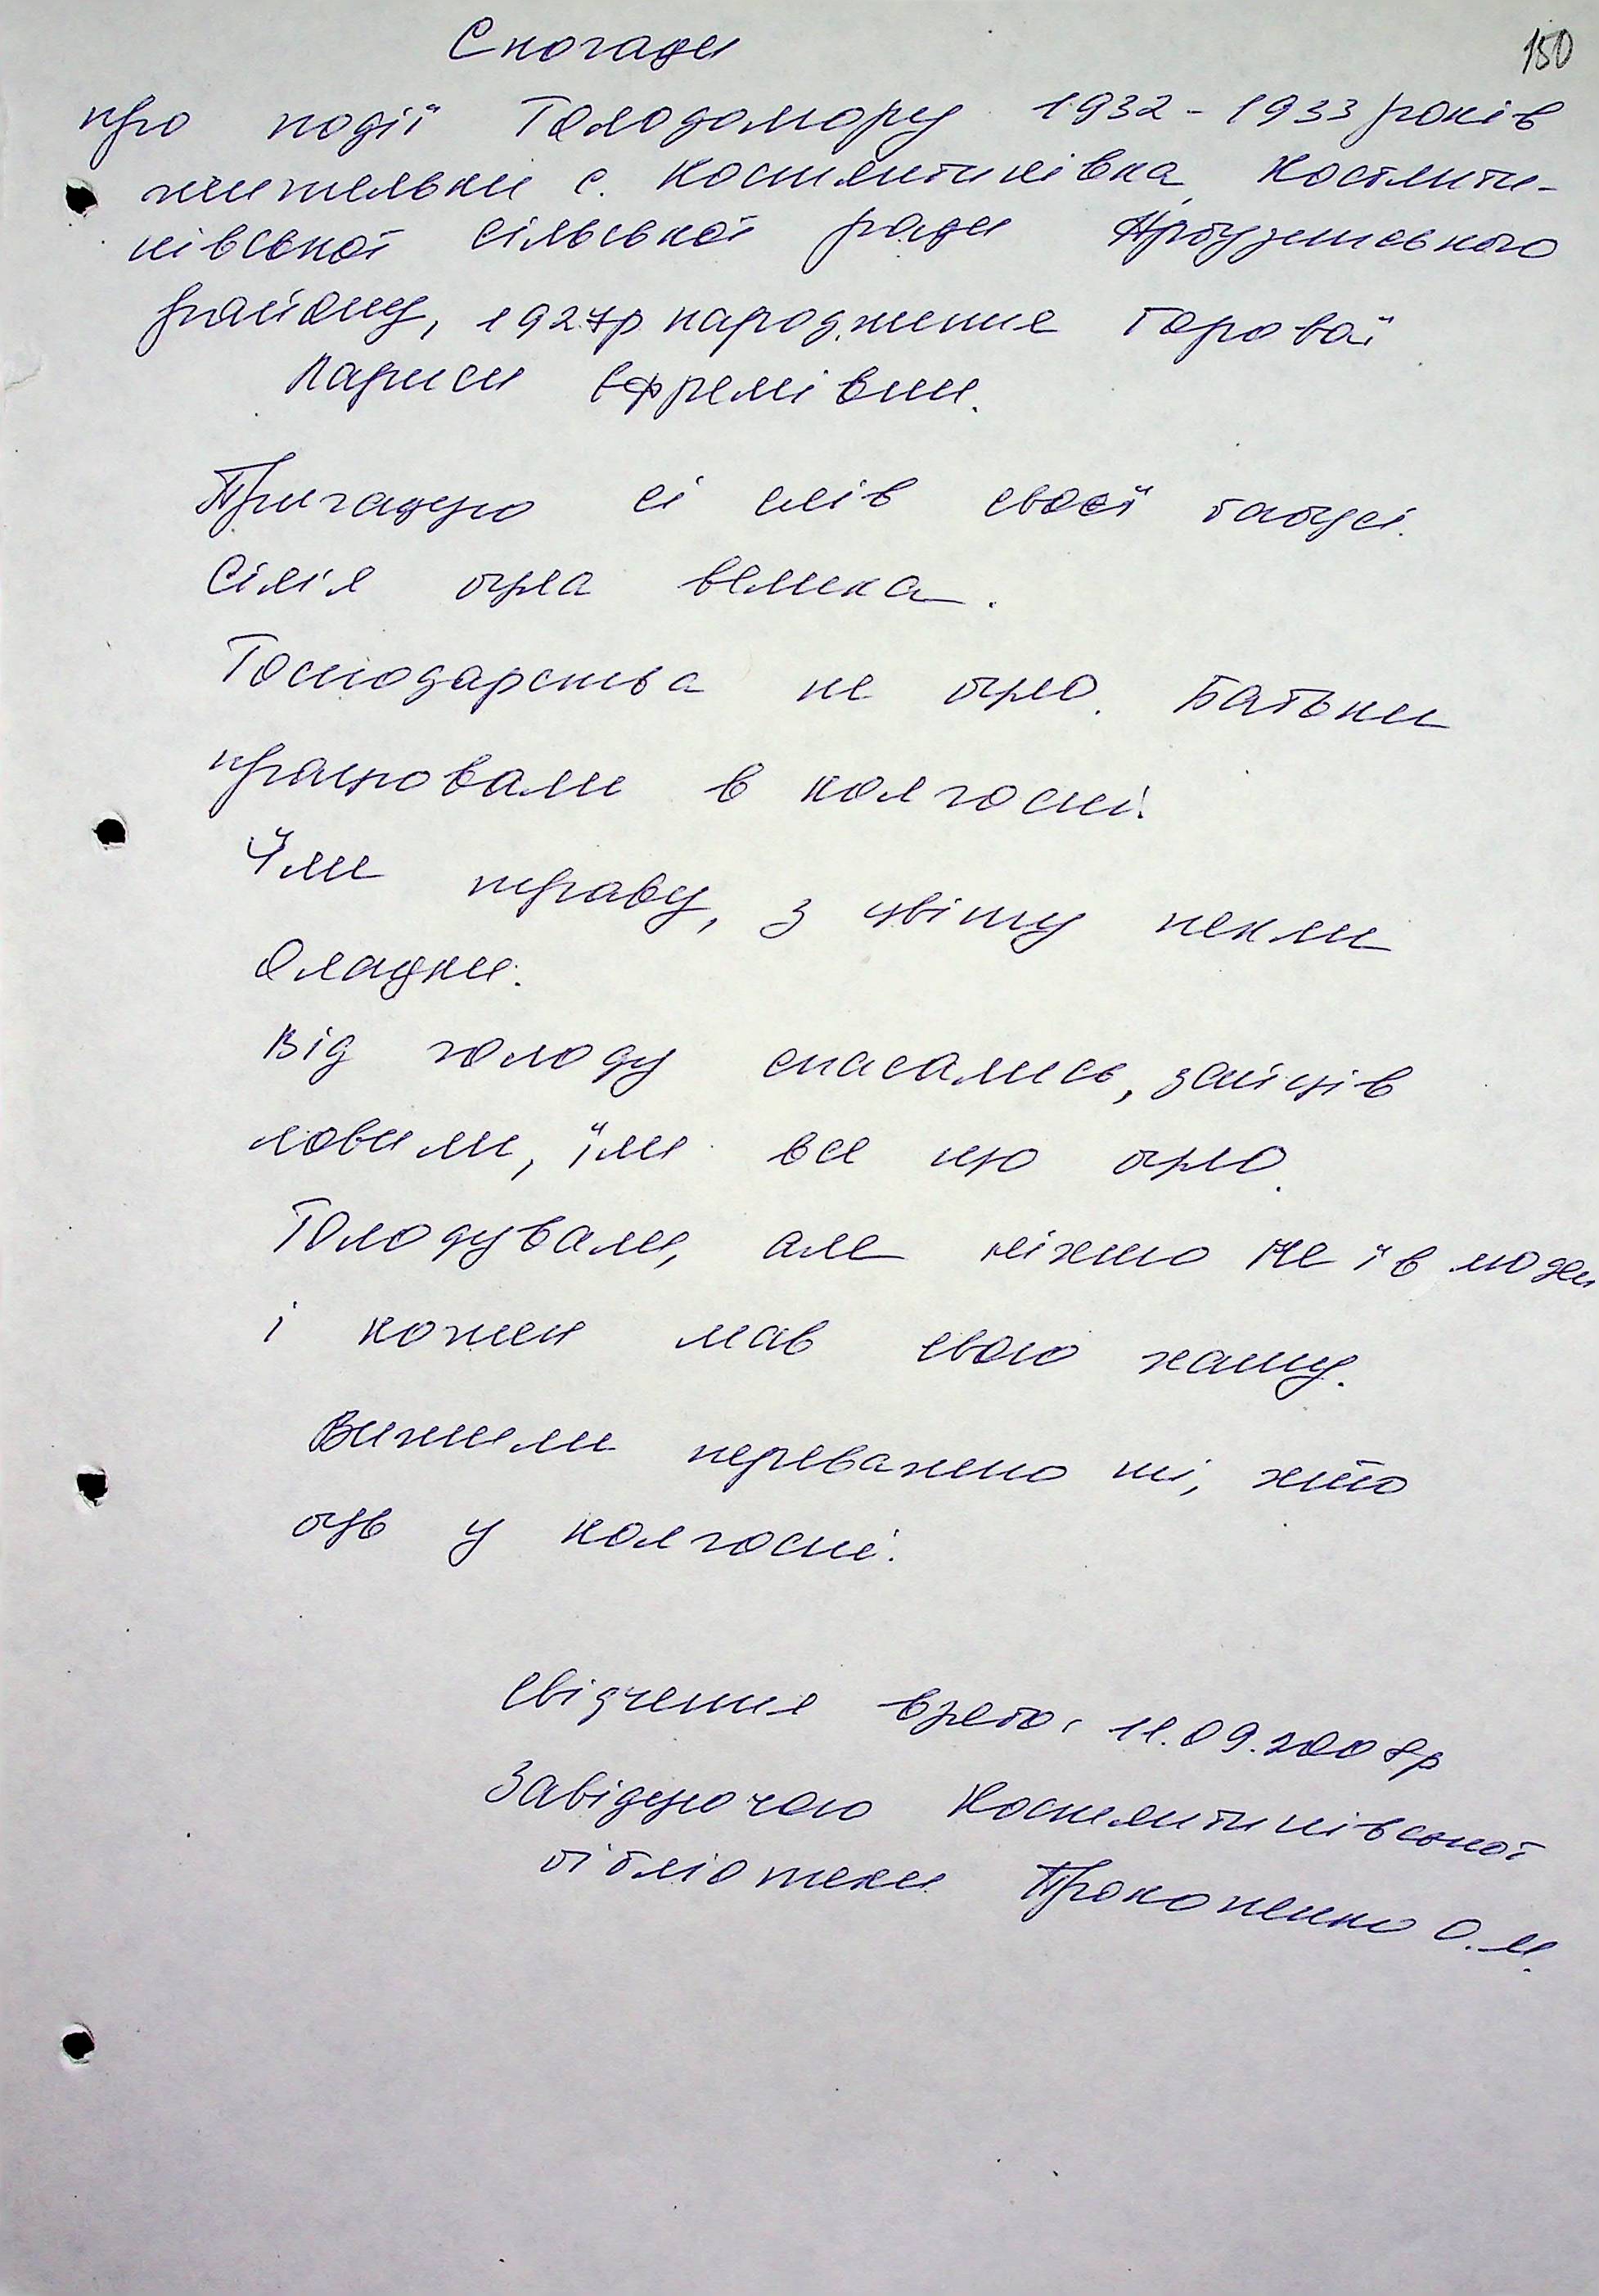 Спогади
150
про події Голодомору 1932-1933 років
жительки с. Костянтинівка Костянти-
нівської сільської ради Арбузинського
району, 1927р народження Горової
Лариси Єфремівни.
Пригадую зі слів своєї бабусі.
Сім'я була велика.
Господарства не було. Батьки
працювали в колгоспі.
Їли траву, з цвіту пекли
оладки.
Від голоду спасались, зайців
ловили, їли все що було.
Голодували, але ніхто не їв люден
і кожен мав свою хату.
Вижили переважно ті, хто
був у колгоспі.
Свідчення взято: 11.09.2008р
Завідуючою Костянтинівської
бібліотеки Прокопенко О.М.